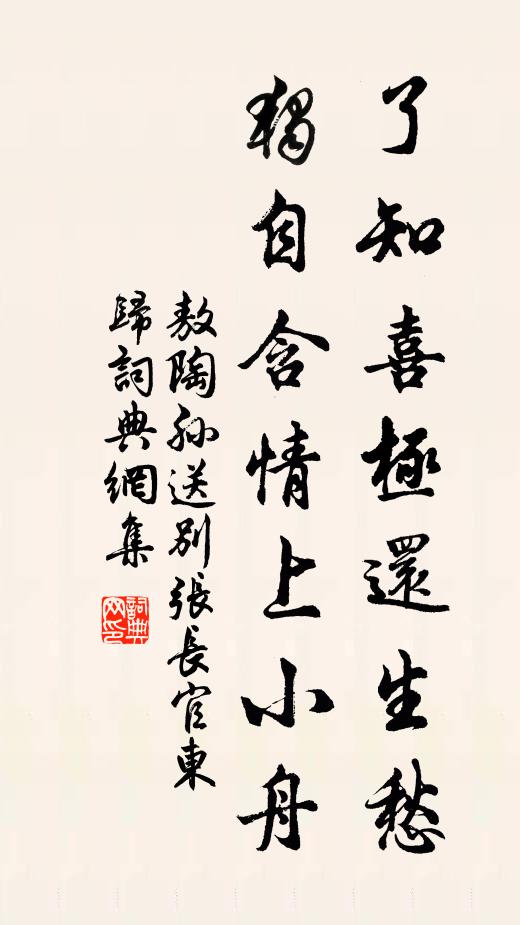 了知喜極還生愁
獨自含情上小舟
敖陶孙送别張長官東
歸詞典網集
詞典
网印